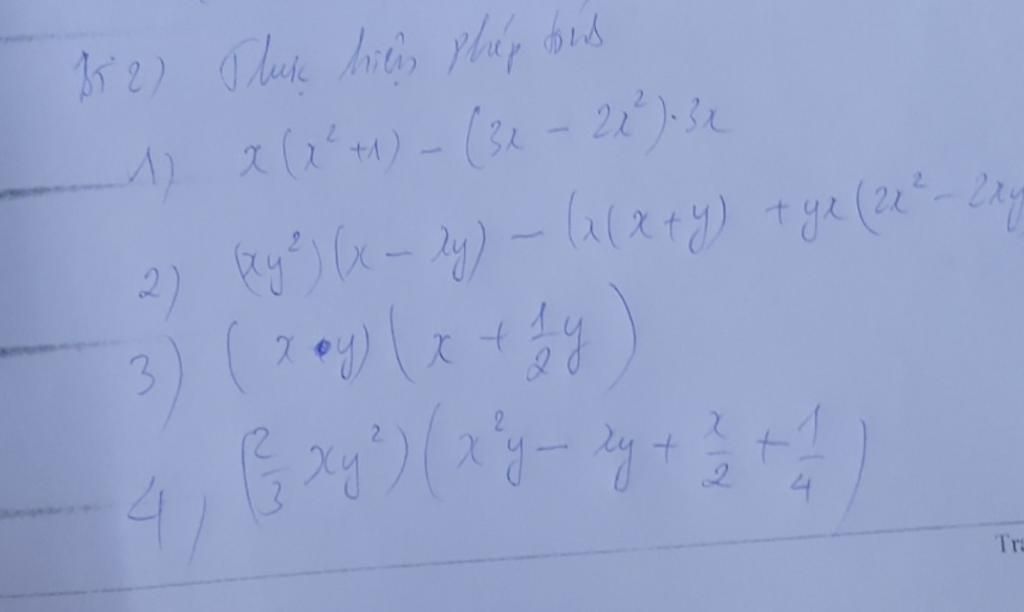 2) Thực hiện phép toán
1) x(x²+1) - (3x - 2x²)·3x
2) (xy²)(x - xy) - (x(x+y) + yx(2x² - 2xy
3) (x · y)(x + 1/2 y)
4, (2/3 xy²)(x²y - xy + x/2 + 1/4)
Tra